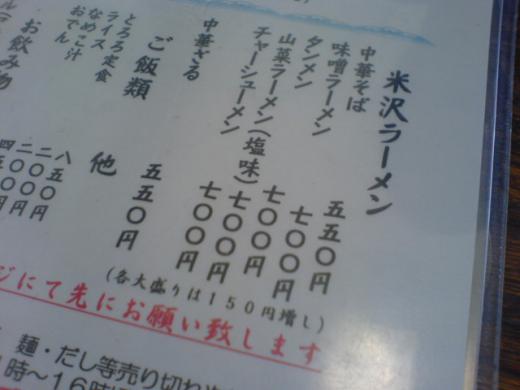 米沢ラーメン
中華そば 五五〇円
味噌ラーメン 七〇〇円
タンメン 七〇〇円
山菜ラーメン(塩味) 七〇〇円
チャーシューメン 七〇〇円
中華ざる 五五〇円
ご飯類 他
とろろ定食 八五〇円
ライス 二〇〇円
なめこ汁 二〇〇円
おでん
お飲み物
(各大盛りは150円増し)
ジにて先にお願い致します
麺・だし等売り切れ
時〜16時